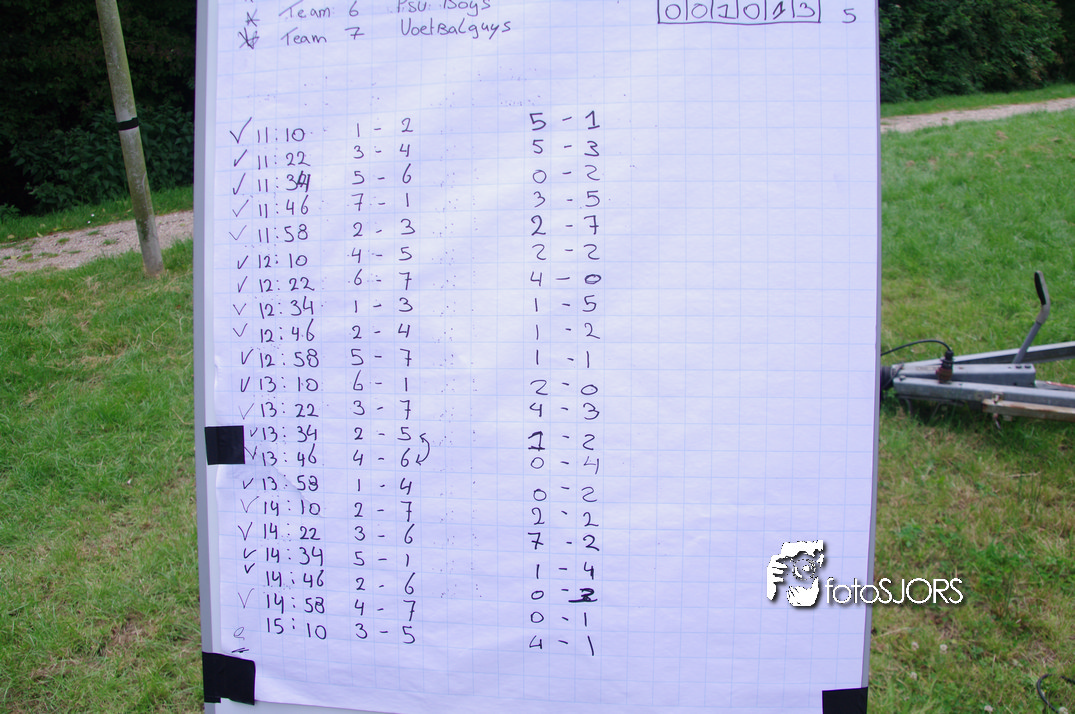 Team 6 PSV Boys 0 0 1 0 1 3 5
Team 7 Voetbalguys
11:10 1 - 2 5 - 1
11:22 3 - 4 5 - 3
11:34 5 - 6 0 - 2
11:46 7 - 1 3 - 5
11:58 2 - 3 2 - 7
12:10 4 - 5 2 - 2
12:22 6 - 7 4 - 0
12:34 1 - 3 1 - 5
12:46 2 - 4 1 - 2
12:58 5 - 7 1 - 1
13:10 6 - 1 2 - 0
13:22 3 - 7 4 - 3
13:34 2 - 5 1 - 2
13:46 4 - 6 0 - 4
13:58 1 - 4 0 - 2
14:10 2 - 7 2 - 2
14:22 3 - 6 7 - 2
14:34 5 - 1 1 - 4
14:46 2 - 6 0 - 3
14:58 4 - 7 0 - 1
15:10 3 - 5 4 - 1
fotoSJORS